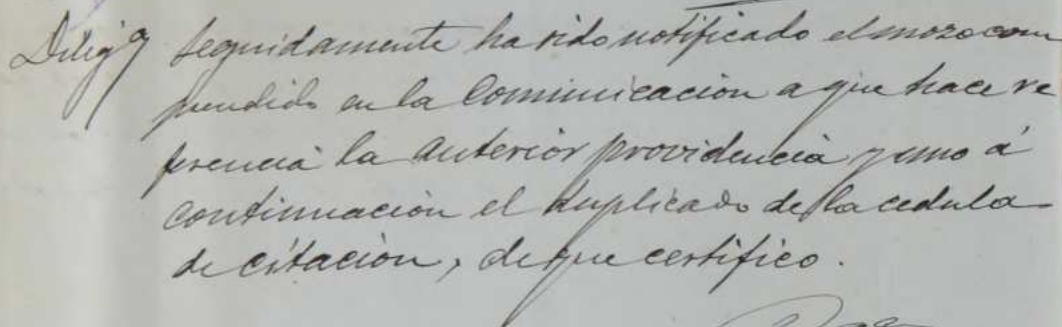 Diligª Seguidamente ha sido notificado el mozo com
prendido en la Comunicacion a que hace re
ferencia la anterior providencia y uno á
continuacion el duplicado de la cedula
de citacion, de que certifico.